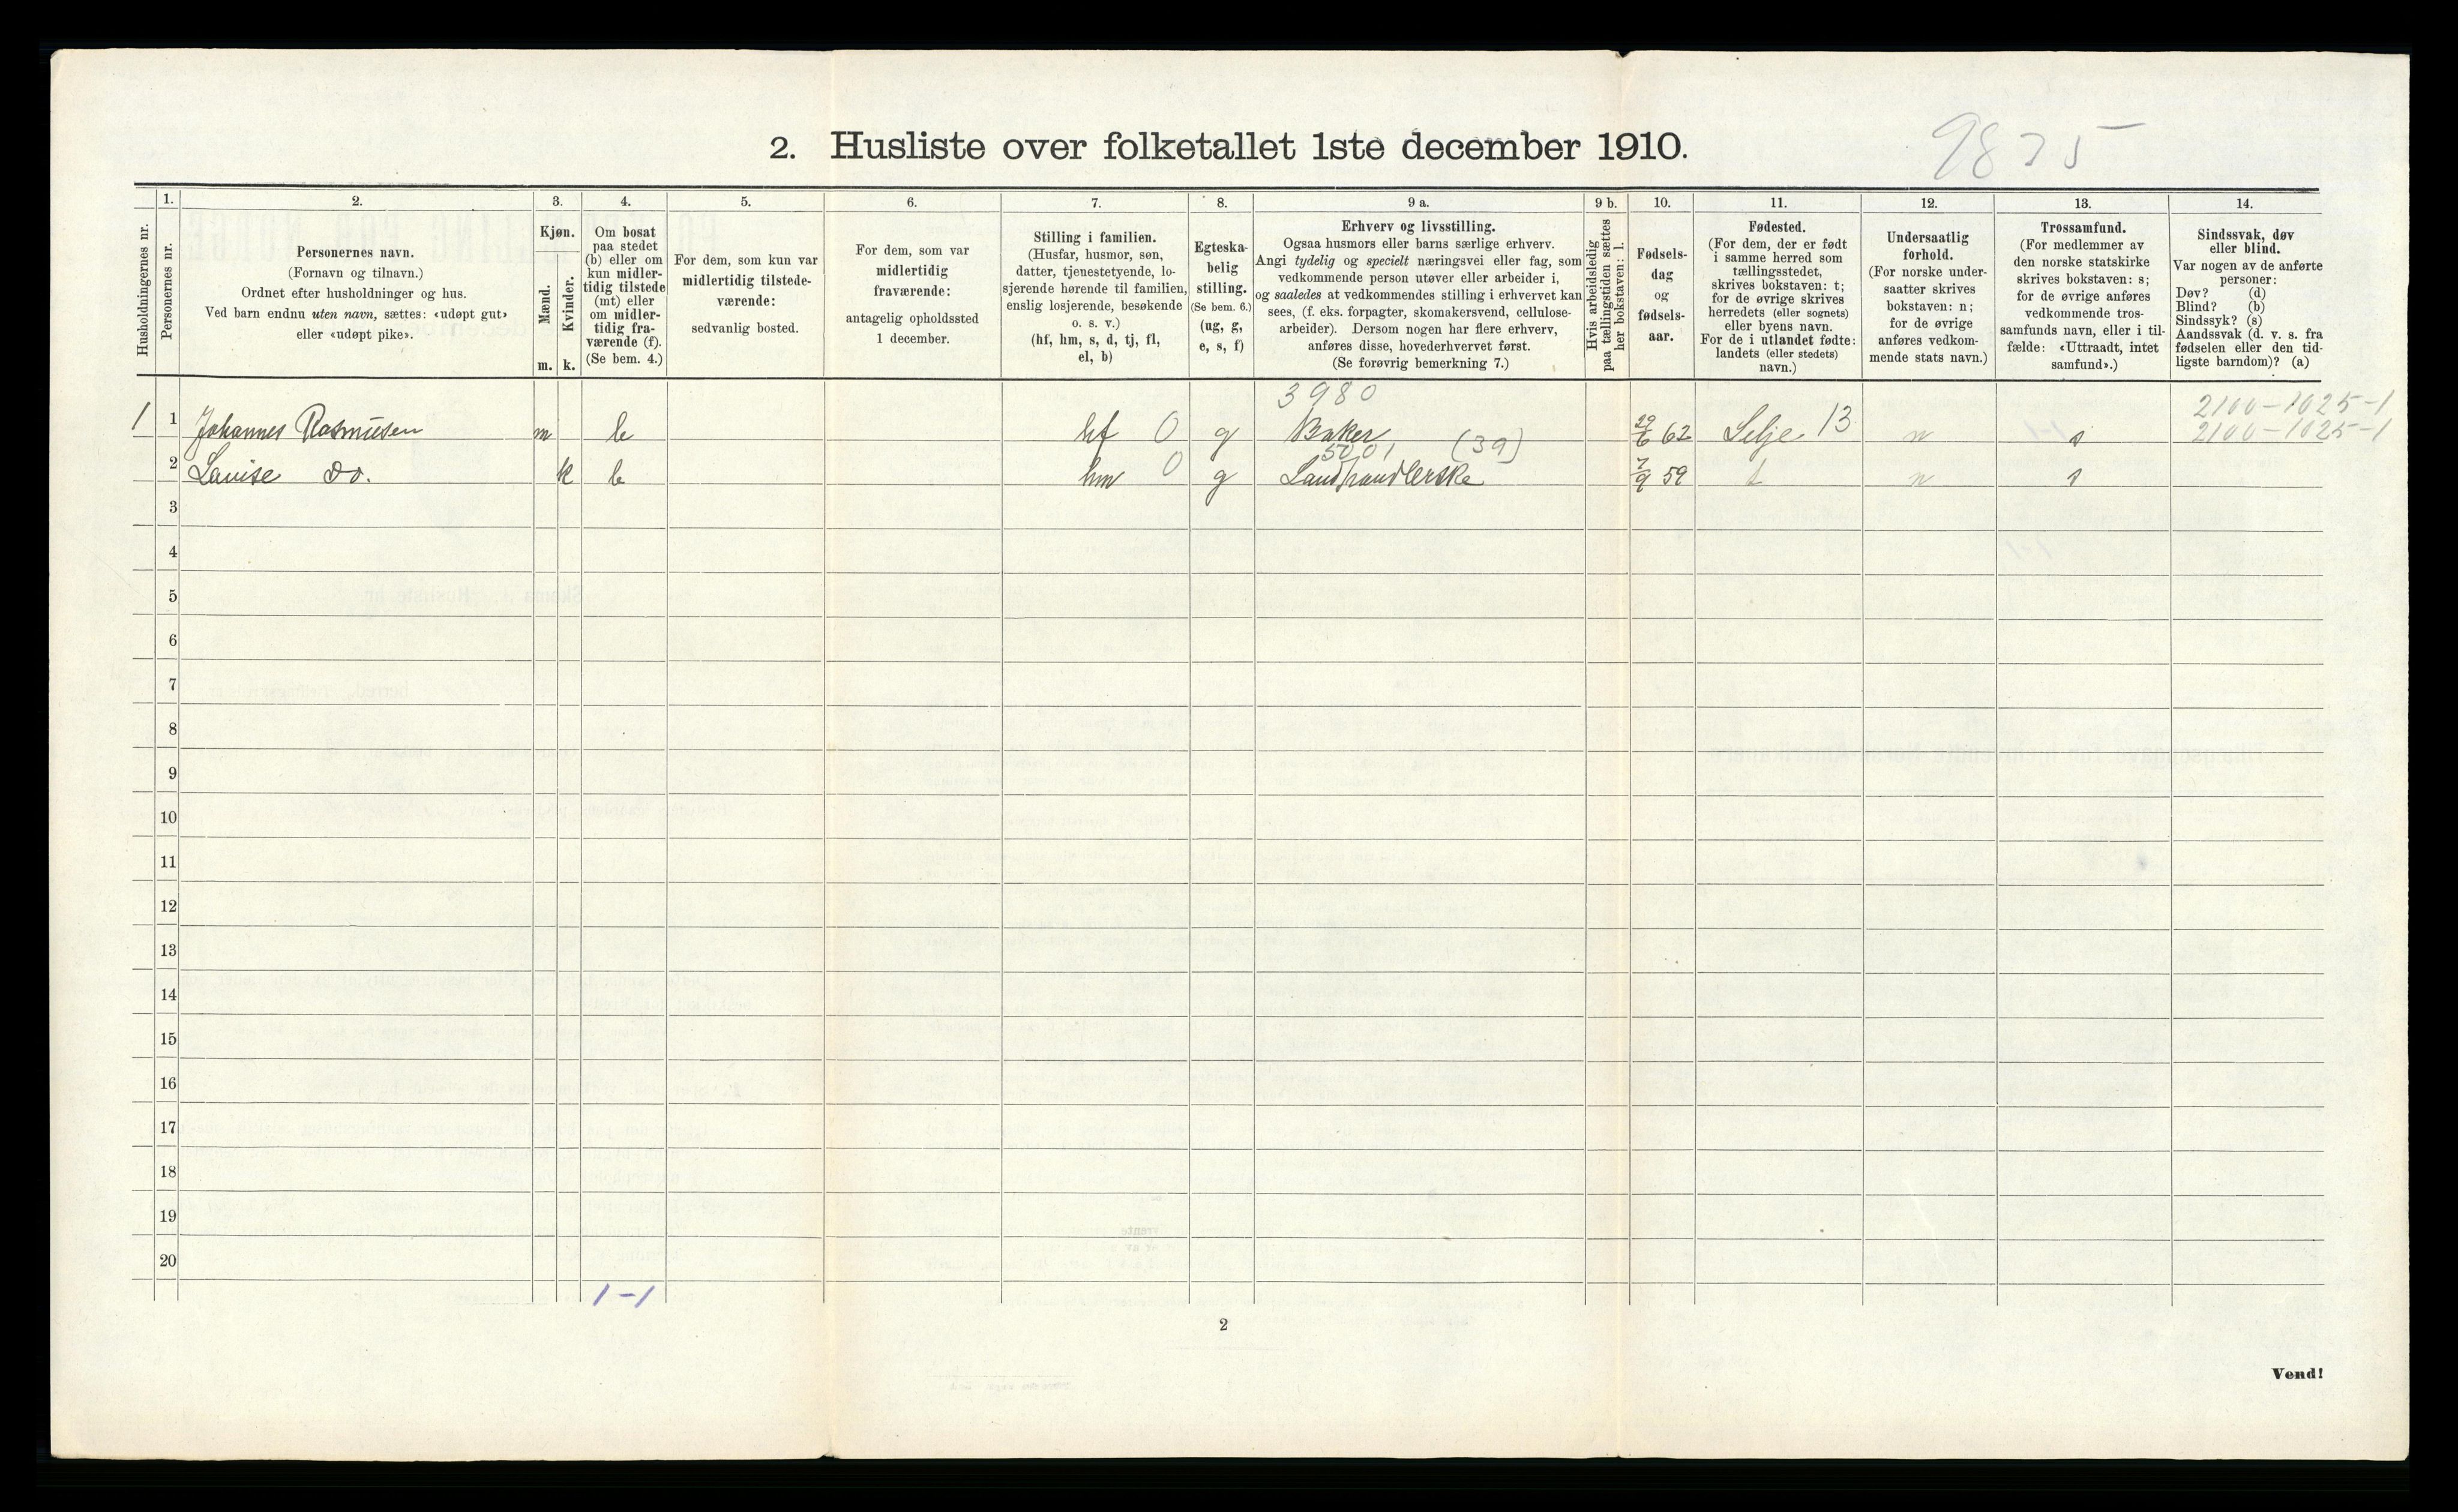 9875
2. Husliste over folketallet 1ste december 1910.
1. 2. 3. 4. 5. 6. 7. 8. 9 a. 9 b. 10. 11. 12. 13. 14.
Husholdningernes nr.
Personernes nr.
Personernes navn.
(Fornavn og tilnavn.)
Ordnet efter husholdninger og hus.
Ved barn endnu uten navn, sættes: «udøpt gut»
eller «udøpt pike».
Kjøn.
Mænd.
Kvinder.
m. k.
Om bosat
paa stedet
(b) eller om
kun midler-
tidig tilstede
(mt) eller
om midler-
tidig fra-
værende (f).
(Se bem. 4.)
For dem, som kun var
midlertidig tilstede-
værende:
sedvanlig bosted.
For dem, som var
midlertidig
fraværende:
antagelig opholdssted
1 december.
Stilling i familien.
(Husfar, husmor, søn,
datter, tjenestetyende, lo-
sjerende hørende til familien,
enslig losjerende, besøkende
o. s. v.)
(hf, hm, s, d, tj, fl,
el, b)
Egteska-
belig
stilling.
(Se bem. 6.)
(ug, g,
e, s, f)
Erhverv og livsstilling.
Ogsaa husmors eller barns særlige erhverv.
Angi tydelig og specielt næringsvei eller fag, som
vedkommende person utøver eller arbeider i,
og saaledes at vedkommendes stilling i erhvervet kan
sees, (f. eks. forpagter, skomakersvend, cellulose-
arbeider). Dersom nogen har flere erhverv,
anføres disse, hovederhvervet først.
(Se forøvrig bemerkning 7.)
Hvis arbeidsledig
paa tællingstiden sættes
her bokstaven: l.
Fødsels-
dag
og
fødsels-
aar.
Fødested.
(For dem, der er født
i samme herred som
tællingsstedet,
skrives bokstaven: t;
for de øvrige skrives
herredets (eller sognets)
eller byens navn.
For de i utlandet fødte:
landets (eller stedets)
navn.)
Undersaatlig
forhold.
(For norske under-
saatter skrives
bokstaven: n;
for de øvrige
anføres vedkom-
mende stats navn.)
Trossamfund.
(For medlemmer av
den norske statskirke
skrives bokstaven: s;
for de øvrige anføres
vedkommende tros-
samfunds navn, eller i til-
fælde: «Uttraadt, intet
samfund».)
Sindssvak, døv
eller blind.
Var nogen av de anførte
personer:
Døv? (d)
Blind? (b)
Sindssyk? (s)
Aandssvak (d. v. s. fra
fødselen eller den tid-
ligste barndom)? (a)
3980 2100-1025-1
1 1 Johannes Rasmusen m b hf 0 g Baker (39) 29/6 62 Selje 13 n s 2100-1025-1
5001
2 Lauise Do. k b hm 0 g Landhandlerske 7/9 59 t n s
3
4
5
6
7
8
9
10
11
12
13
14
15
16
17
18
19
20
1-1
2
Vend!